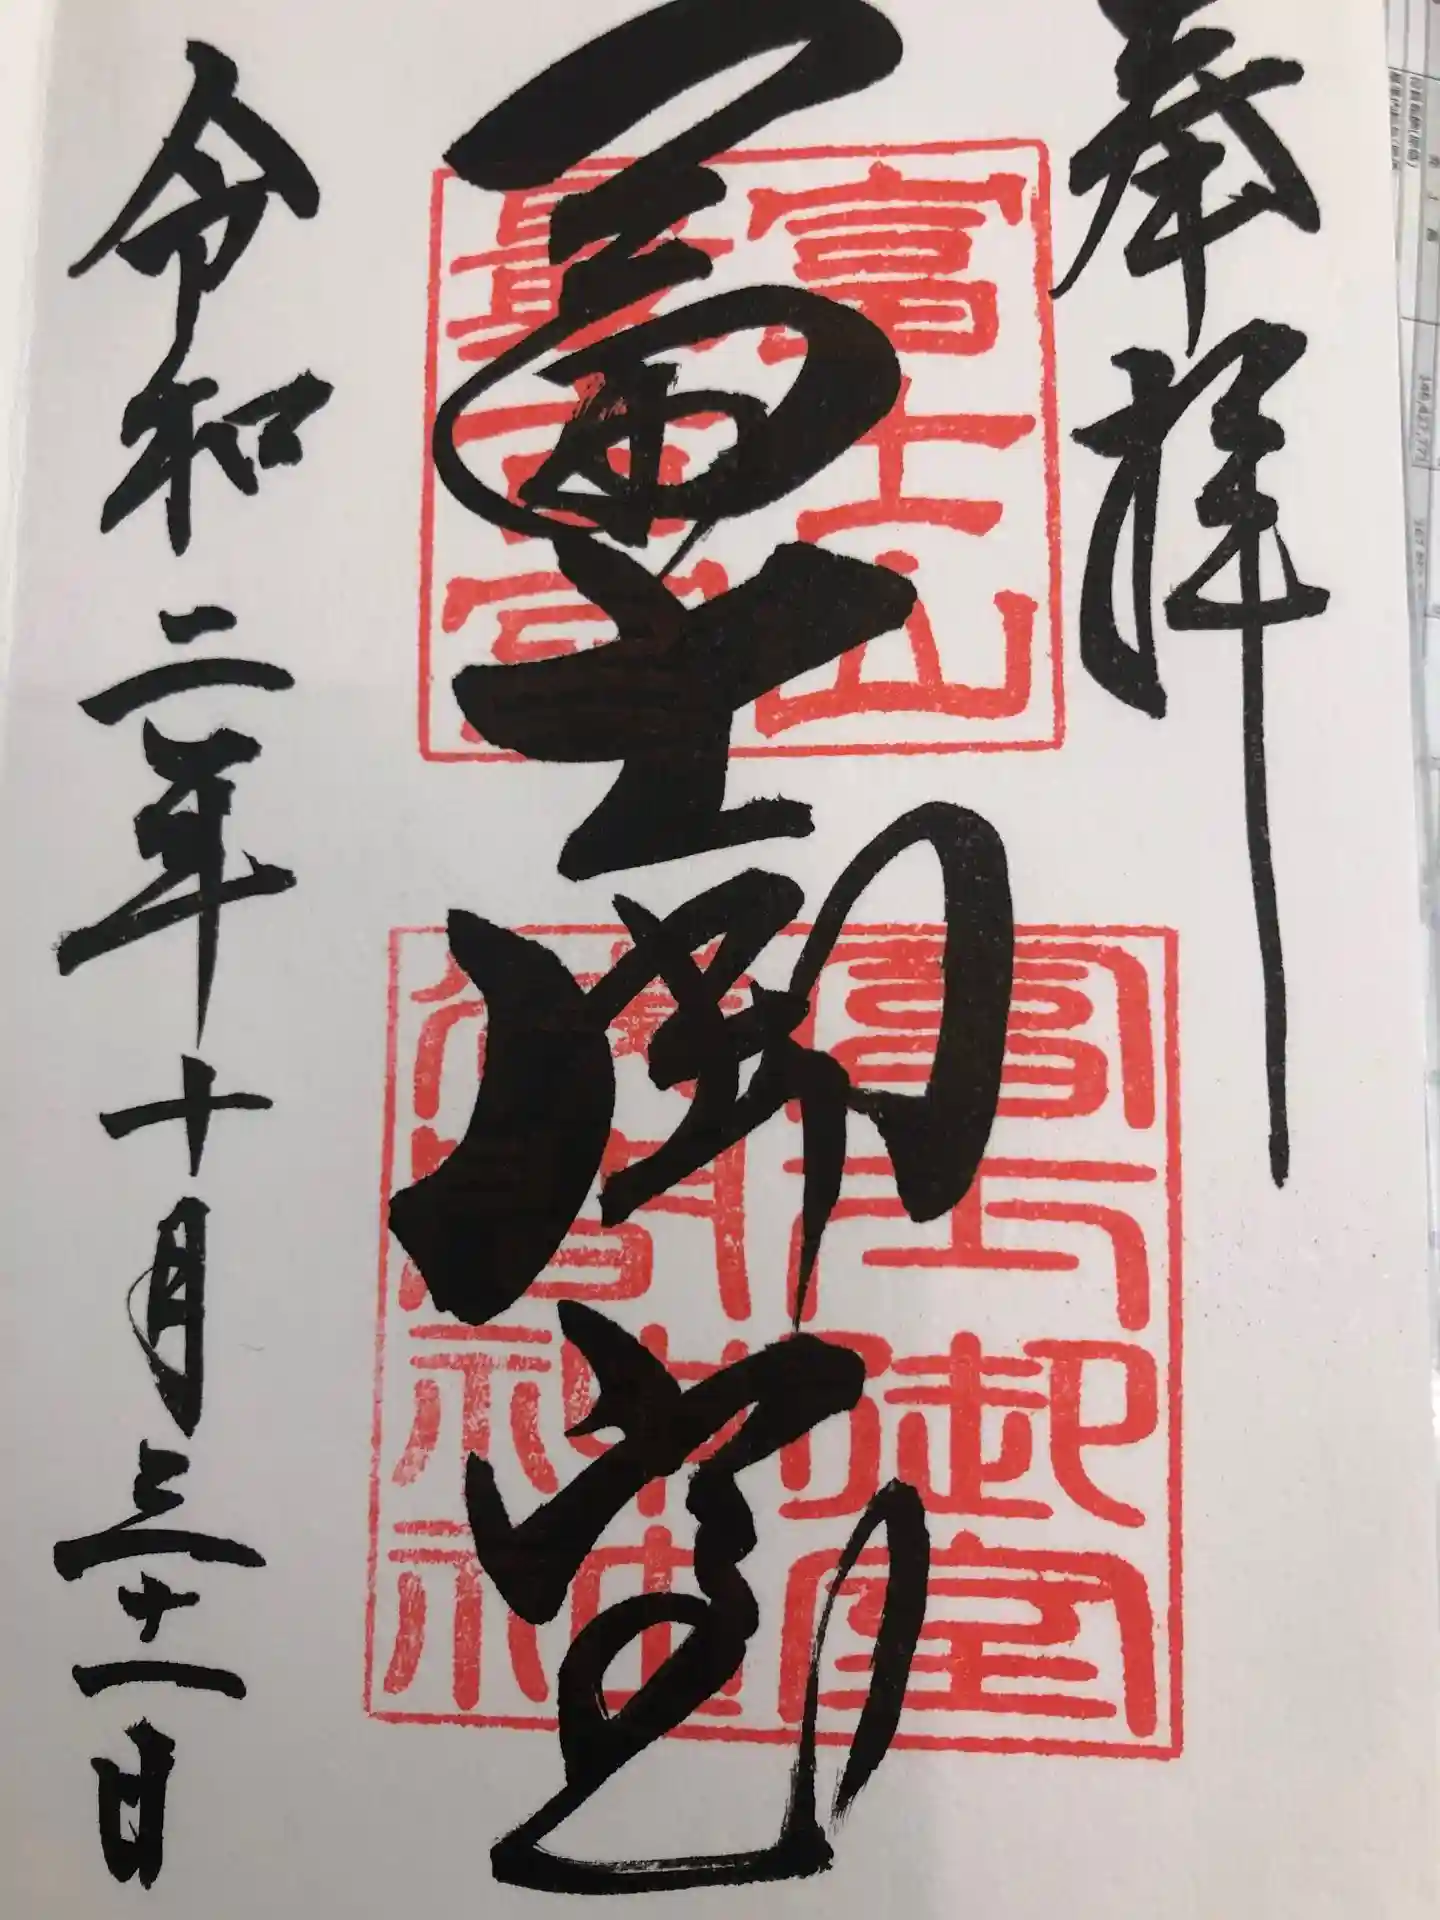 奉拝
冨士御室
富士山
最古宮
冨士御室
浅間神社
令和二年十月三十一日